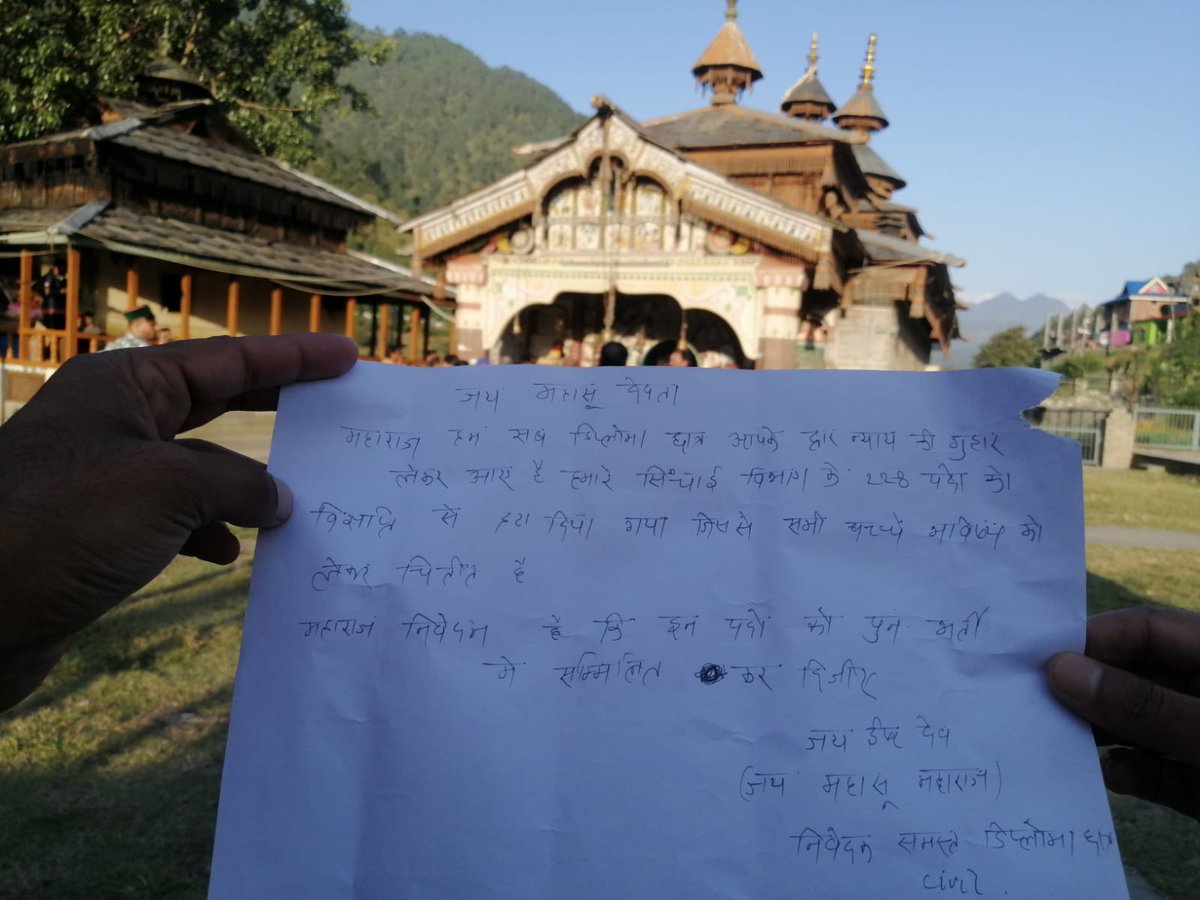 जय महासू देवता
महाराज हम सब डिप्लोमा छात्र आपके द्वार न्याय की गुहार
लेकर आएं हैं हमारे सिंचाई विभाग के २२४ पदो को
विज्ञप्ति से हटा दिया गया जिससे सभी बच्चें भविष्य को
लेकर चिंतित है
महाराज निवेदन है कि इन पदों को पुन भर्ती
मे सम्मिलित कर दिजीए
जय ईष्ट देव
(जय महासू महाराज)
निवेदक समस्त डिप्लोमा छात्र
civil.